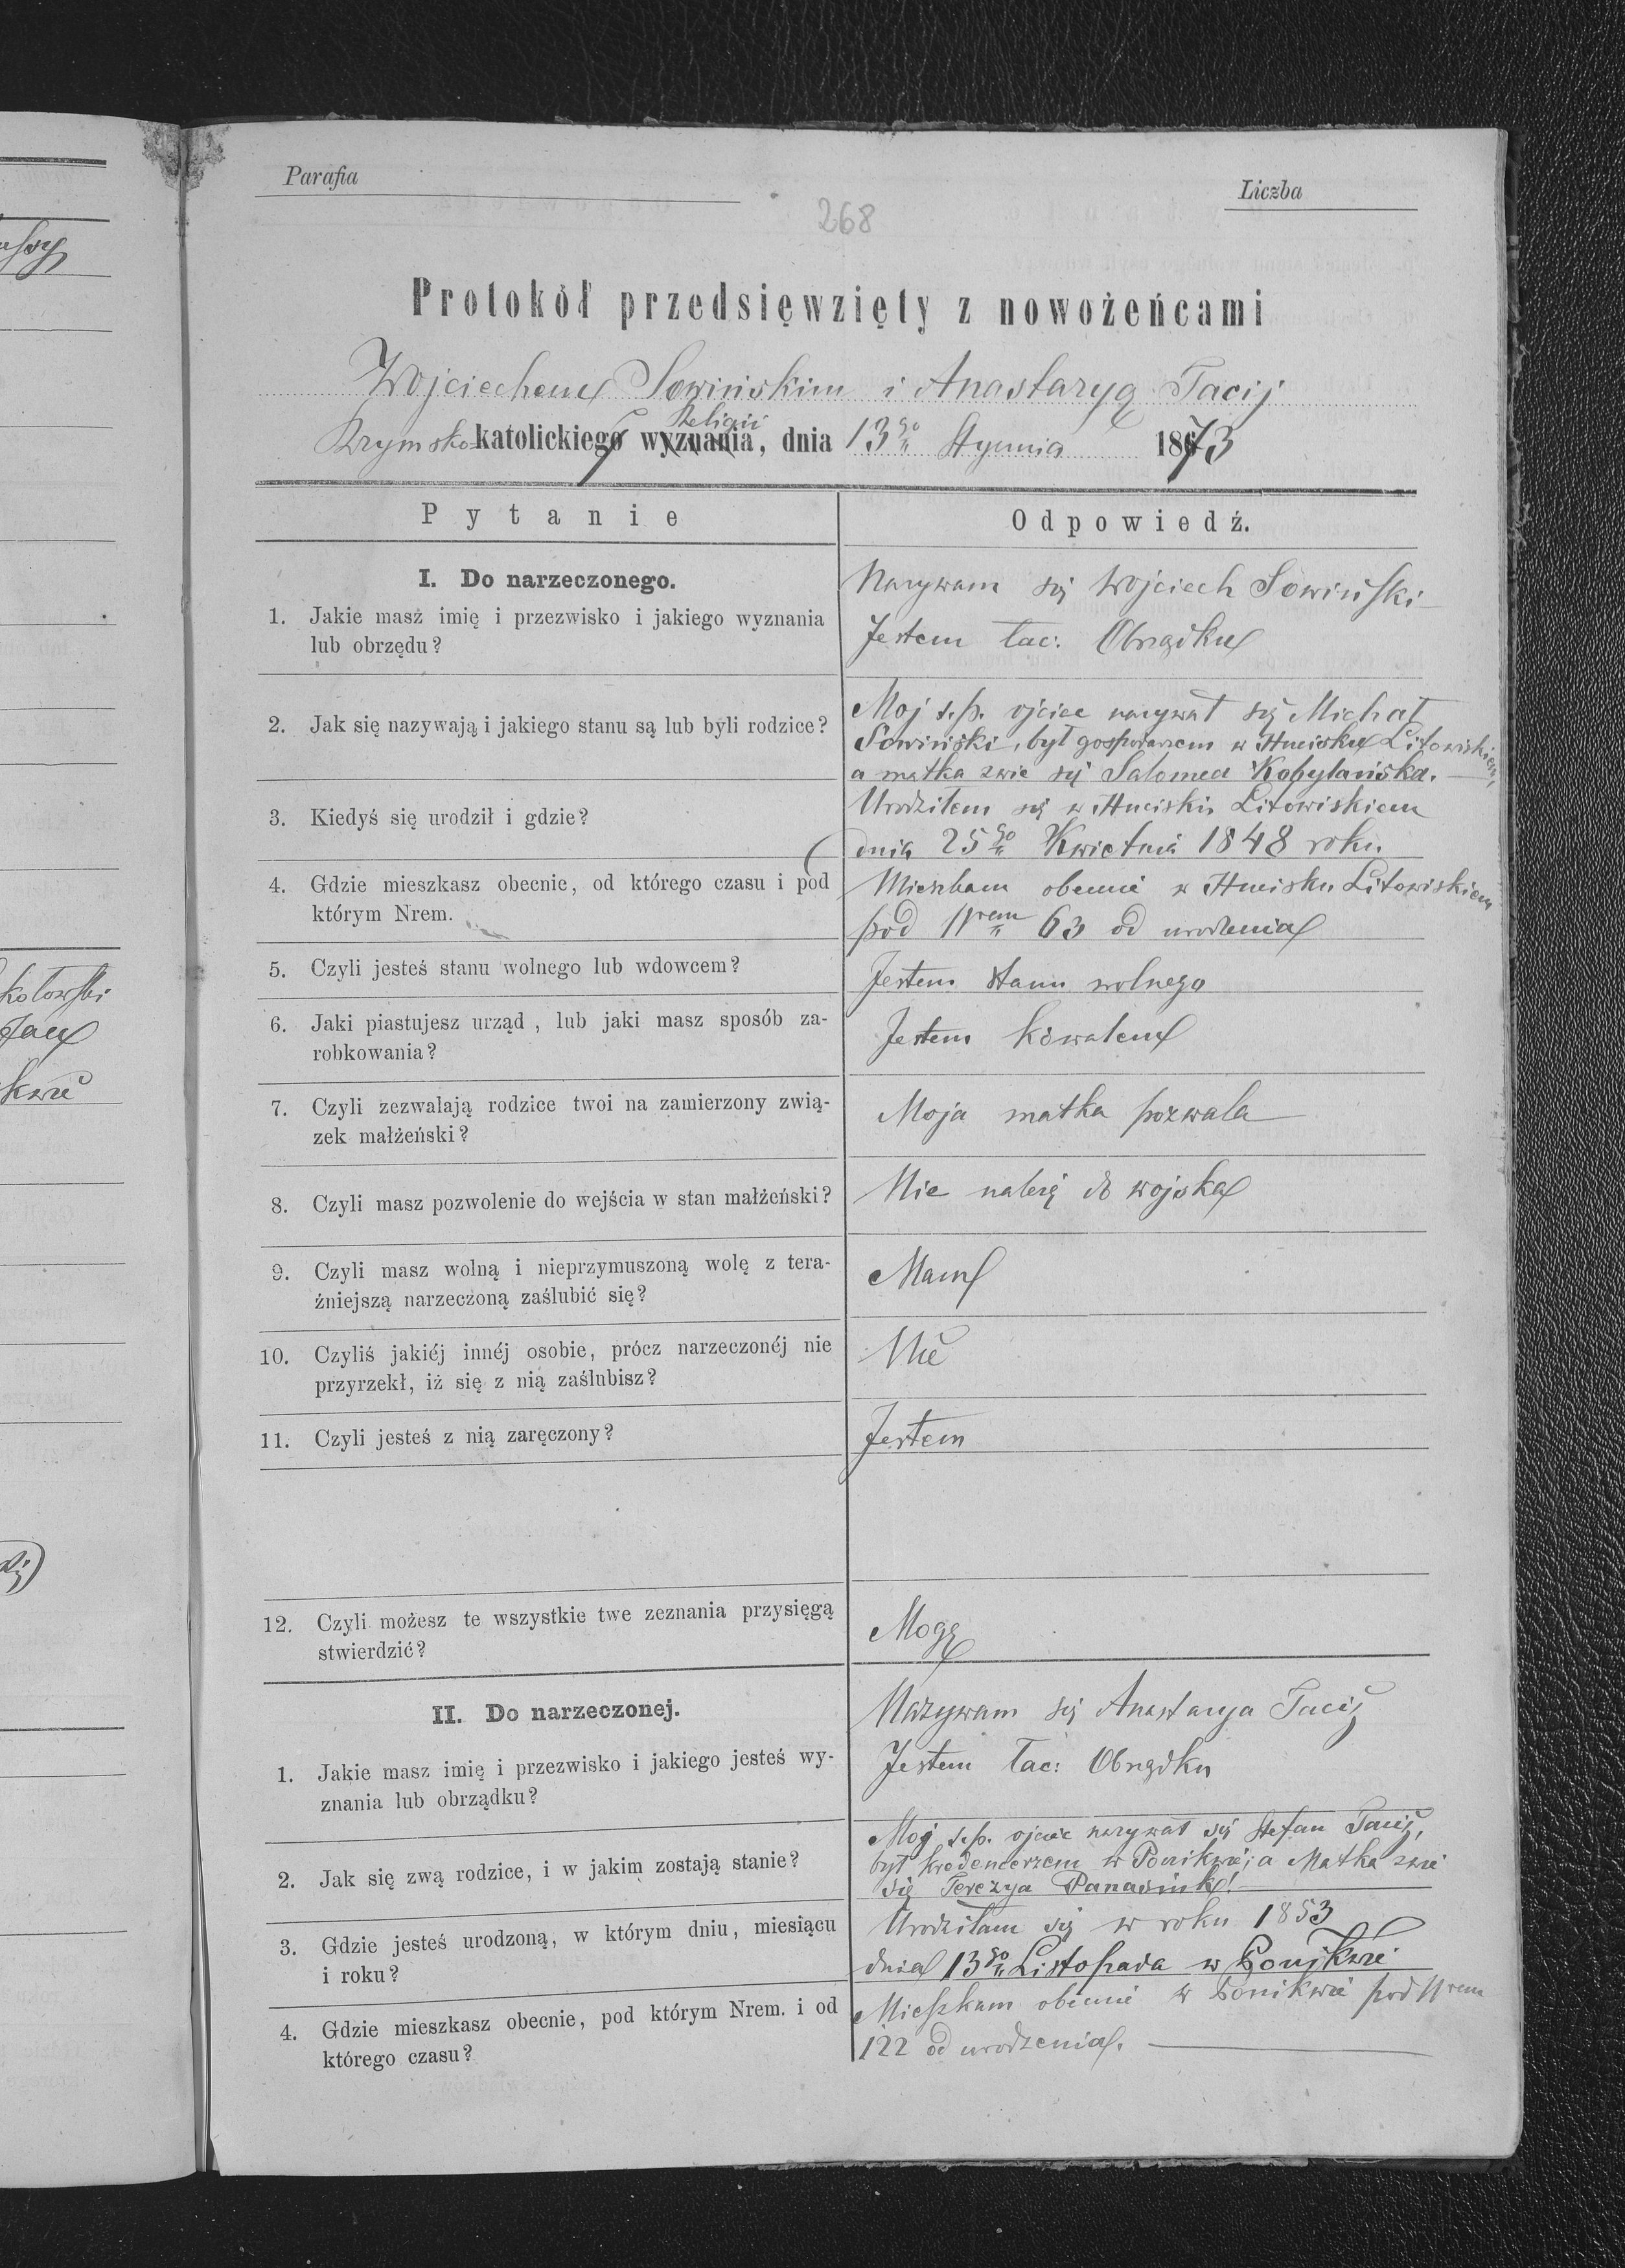 Parafia
Liczba
268
Protokół przedsięwzięty z nowożeńcami
Wojciechem Sowińskim i Anastazyą Tacij
Religii
Rzymsko katolickiego wyznania, dnia 13go Stycznia 1873
Pytanie
Odpowiedź.
I. Do narzeczonego.
1. Jakie masz imię i przezwisko i jakiego wyznania
lub obrzędu?
Nazywam się Wojciech Sowiński
Jestem łac: Obrządku
2. Jak się nazywają i jakiego stanu są lub byli rodzice?
Moj ś.p. ojciec nazywał się Michał
Sowiński, był gospodarzem w Hucisku Litowiskiem,
a matka zwie się Salomea Kobylańska.
3. Kiedyś się urodził i gdzie?
Urodziłem się w Hucisku Litowiskiem
dnia 25go Kwietnia 1848 roku
4. Gdzie mieszkasz obecnie, od którego czasu i pod
którym Nrem.
Mieszkam obecnie w Hucisku Litowiskiem
pod Nrem 63 od urodzenia
5. Czyli jesteś stanu wolnego lub wdowcem?
Jestem stanu wolnego
6. Jaki piastujesz urząd, lub jaki masz sposób za-
robkowania?
Jestem kowalem
7. Czyli zezwalają rodzice twoi na zamierzony zwią-
zek małżeński?
Moja matka pozwala
8. Czyli masz pozwolenie do wejścia w stan małżeński?
Nie należę do wojska
9. Czyli masz wolną i nieprzymuszoną wolę z tera-
źniejszą narzeczoną zaślubić się?
Mam
10. Czyliś jakiéj innéj osobie, prócz narzeczonéj nie
przyrzekł, iż się z nią zaślubisz?
Nie
11. Czyli jesteś z nią zaręczony?
Jestem
12. Czyli możesz te wszystkie twe zeznania przysięgą
stwierdzić?
Mogę
II. Do narzeczonej.
1. Jakie masz imię i przezwisko i jakiego jesteś wy-
znania lub obrządku?
Nazywam się Anastazya Tacij
Jestem łac: Obrządku
2. Jak się zwą rodzice, i w jakim zostają stanie?
Moj ś.p. ojciec nazywał się Stefan Tacij,
był kredencerzem w Ponikwie, a Matka zwie
się Terezya Panasiuk.
3. Gdzie jesteś urodzoną, w którym dniu, miesiącu
i roku?
Urodziłam się w roku 1853
dnia 13go Listopada w Ponikwie
4. Gdzie mieszkasz obecnie, pod którym Nrem. i od
którego czasu?
Mieszkam obecnie w Ponikwie pod Nrem
122 od urodzenia.